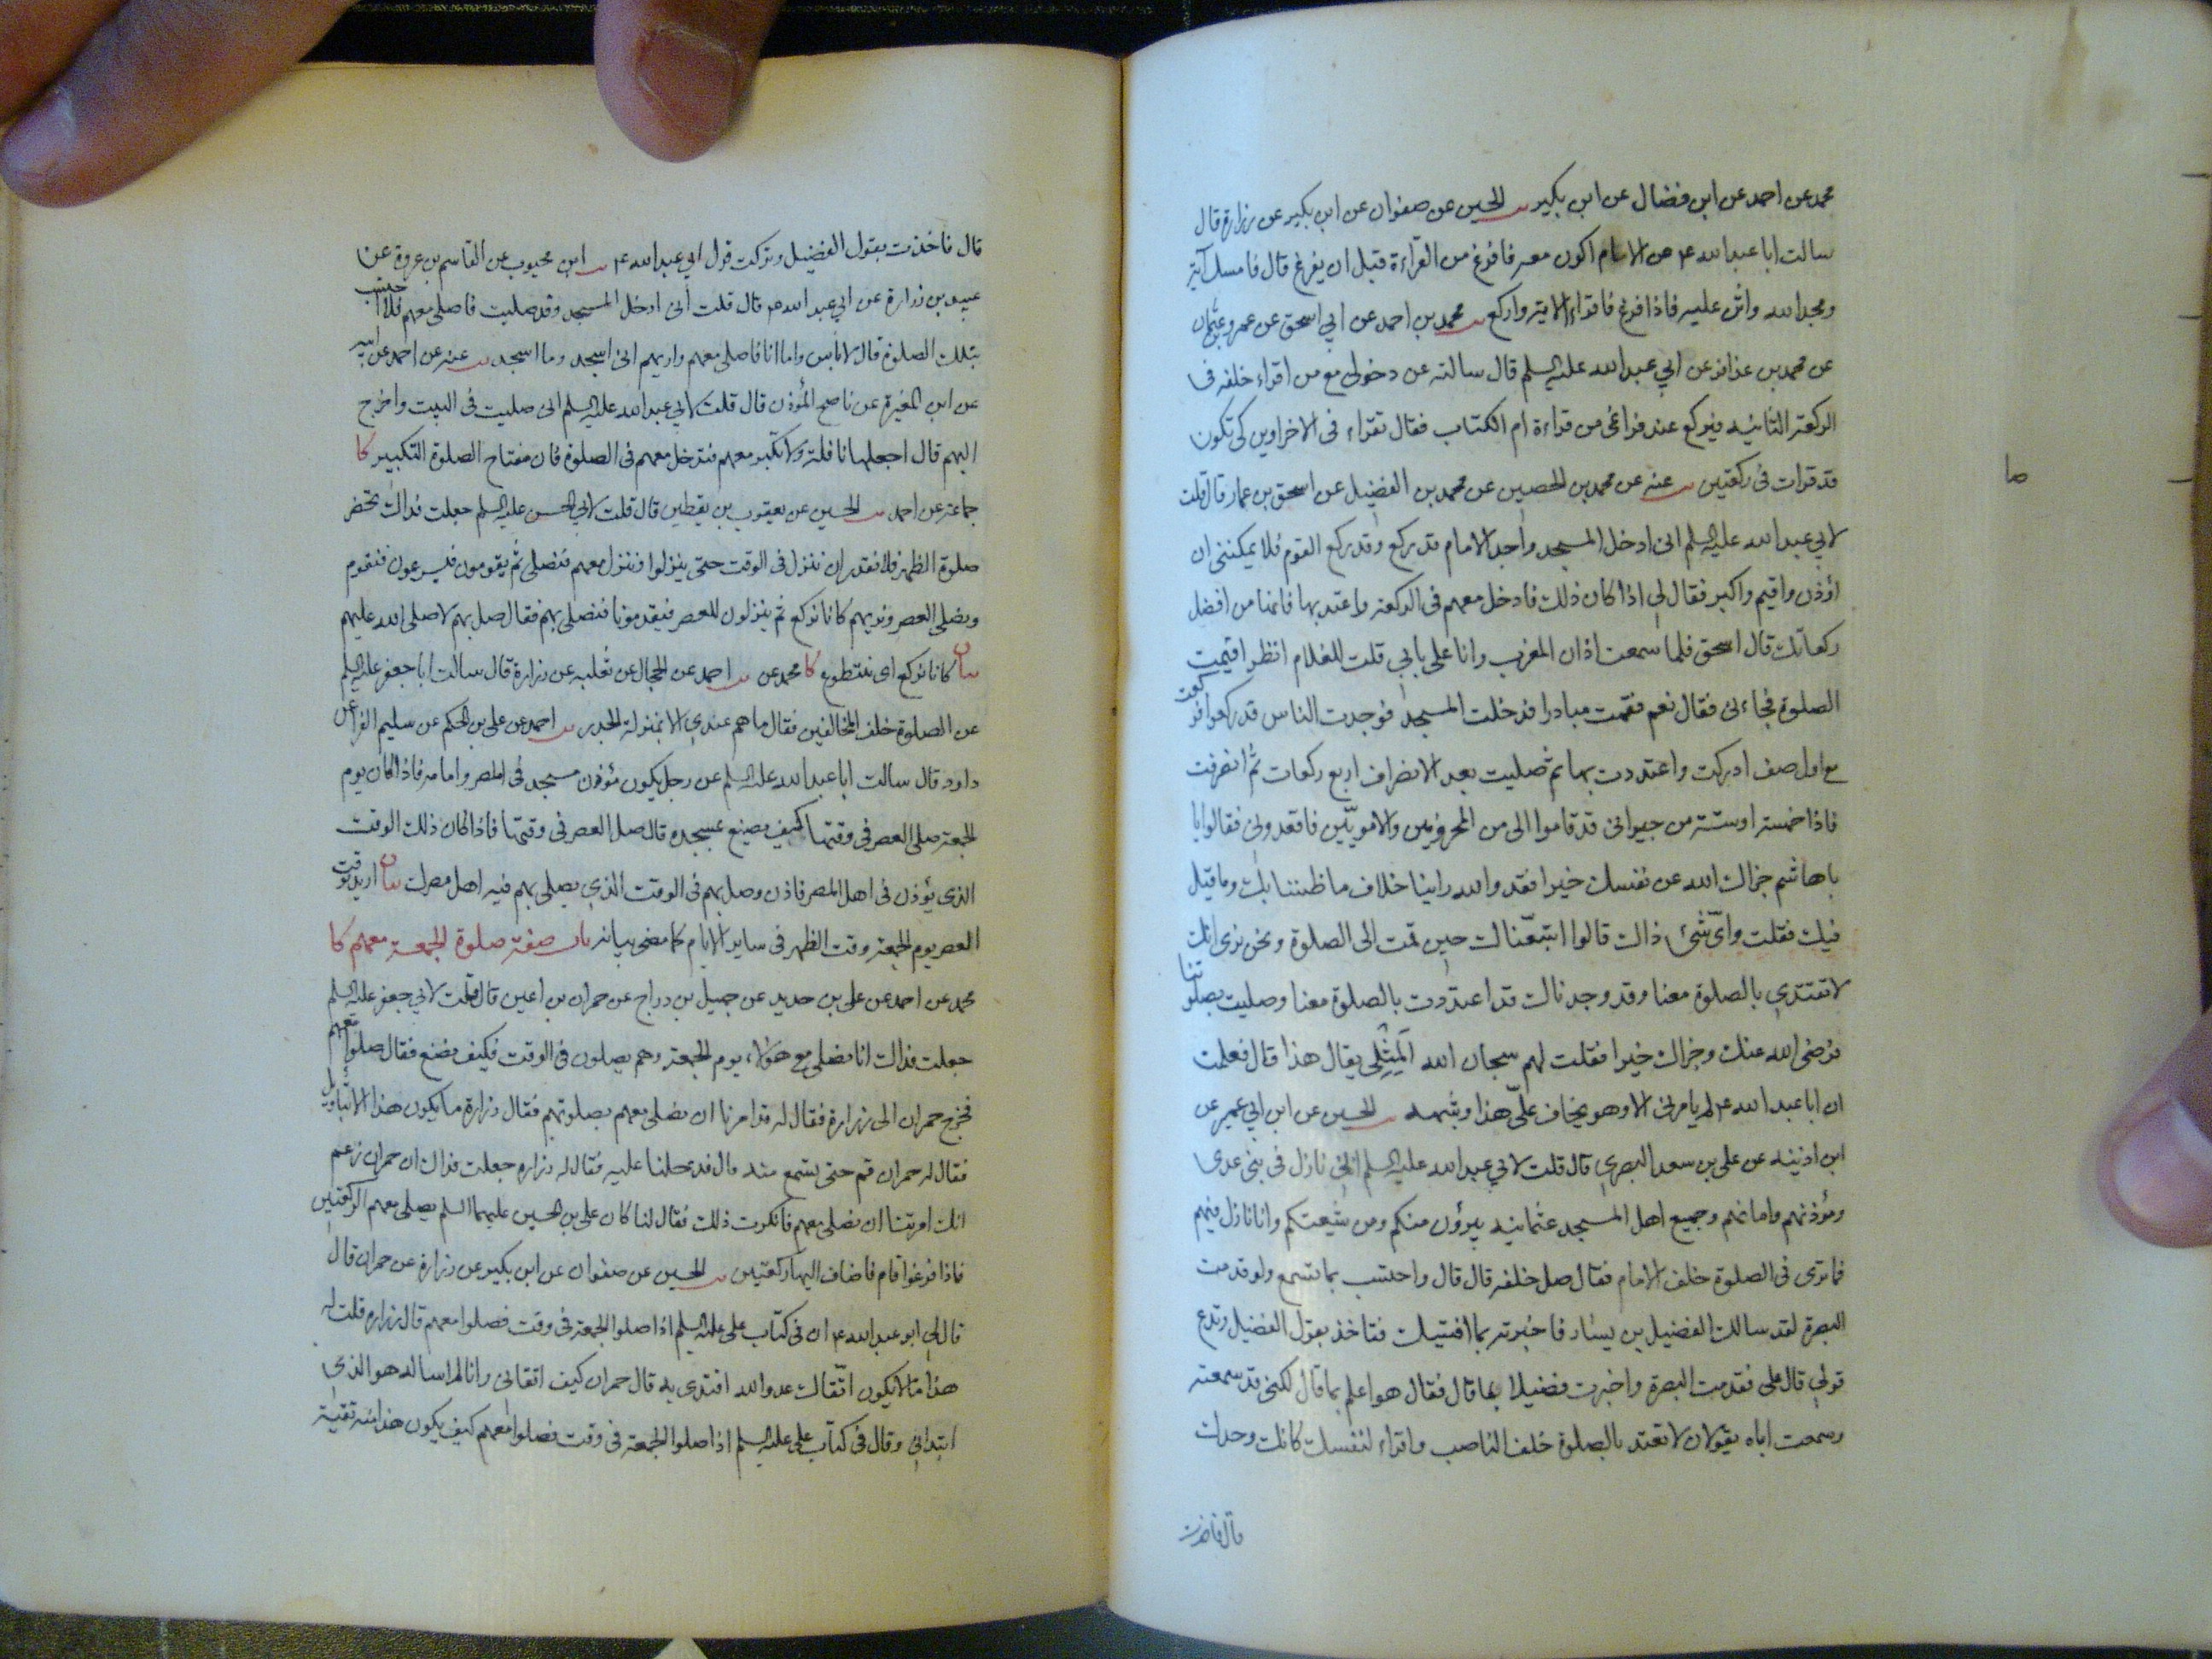 محمد عن احمد عن ابن فضال عن ابن بكير يب الحسين عن صفوان عن ابن بكير عن زرارة قال
سالت ابا عبد الله ع عن الامام اكون معه فافرغ من القراءة قبل ان يفرغ قال فامسك آية
ومجد الله واثن عليه فاذا فرغ فاقراء الاية واركع يب محمد بن احمد عن ابي اسحق عن عمرو بن عثمان
عن محمد بن عذافر عن ابي عبد الله عليه السلم قال سالته عن دخولي مع من اقراء خلفه في
الركعة الثانيه فيركع عند فراغي من قراءة ام الكتاب فقال تقراء في الاخراوين كي تكون
قد قرات في ركعتين يب عنه عن محمد بن الحصين عن محمد بن الفضيل عن اسحق بن عمار قال قلت
لابي عبد الله عليه السلم اني ادخل المسجد واجد الامام قد ركع وقد ركع القوم فلا يمكنني ان
اؤذن واقيم واكبر فقال لي اذا كان ذلك فادخل معهم في الركعة واعتد بها فانها من افضل
ركعاتك قال اسحق فلما سمعت اذان المغرب وانا على بابي قلت للغلام انظر اقيمت
الصلوة فجاءني فقال نعم فقمت مبادرا فدخلت المسجد فوجدت الناس قد ركعوا فركعت
مع اول صف ادركت واعتددت بها ثم صليت بعد الانصراف اربع ركعات ثم انصرفت
فاذا خمسة او ستة من جيراني قد قاموا الى من المخزوميين والامويّين فاقعدوني فقالوا يا
با هاشم جزاك الله عن نفسك خيرا فقد والله راينا خلاف ما ظننا بك وما قيل
فيك فقلت وايّ شئ ذاك قالوا اتبعّناك حين قمت الى الصلوة ونحن نرى انك
لا تقتدي بالصلوة معنا وقد وجدناك قد اعتددت بالصلوة معنا وصليت بصلوتنا
فرضي الله عنك وجزاك خيرا فقلت لهم سبحان الله المثلي يقال هذا قال فعلمت
ان ابا عبد الله ع لم يامرني الا وهو يخاف علّي هذا وشبهه يب الحسين عن ابن ابي عمير عن
ابن اذينه عن علي بن سعد البصري قال قلت لابي عبد الله عليه السلم اني نازل في بني عدى
ومؤذنهم وامامهم وجميع اهل المسجد عثمانيه يبرؤن منكم ومن شيعتكم وانا نازل فيهم
فما ترى في الصلوة خلف الامام فقال صل خلفه قال قال واحتسب بما تسمع ولو قدمت
البصرة لقد سالك الفضيل بن يسار فاخبرته بما افتيتك فتاخذ بقول الفضيل وتدع
قولي قال علي فقدمت البصرة واخبرت فضيلا بما قال فقال هو اعلم بما قال لكني قد سمعته
وسمعت اباه يقولان لا تعتد بالصلوة خلف الناصب واقراء لنفسك كانك وحدك
قال فاخذت
قال فاخذت بقول الفضيل وتركت قول ابي عبد الله ع يب ابن محبوب عن القاسم بن عروة عن
عبيد بن زرارة عن ابي عبد الله ع قال قلت أني ادخل المسجد وقد صليت فاصلى معهم فلا احتسب
بتلك الصلوة قال لا باس واما انا فاصلى معهم واريهم اني اسجد وما اسجد يب عنه عن احمد عن ابيه
عن ابن المغيرة عن ناصح المؤذن قال قلت لابي عبد الله عليه السلم اني صليت في البيت واخرج
اليهم قال اجعلها نافلة ولا تكبر معهم فتدخل معهم في الصلوة فان مفتاح الصلوة التكبير كا
جماعة عن احمد يب الحسين عن يعقوب بن يقطين قال قلت لابي الحسن عليه السلم جعلت فداك تحضر
صلوة الظهر فلا نقدر ان ننزل في الوقت حتى ينزلوا فننزل معهم فنصلي ثم يقومون فيسرعون فنقوم
ونصلي العصر ونريهم كانا نركع ثم ينزلون للعصر فيقدمونا فنصلي بهم فقال صل بهم لا صلى الله عليهم
بيان كانا نركع اى نتطوع كا محمد عن يب احمد عن الحجال عن ثعلبه عن زرارة قال سالت ابا جعفر عليه السلم
عن الصلوة خلف المخالفين فقال ما هم عندي الا بمنزلة الجدر يب احمد عن علي بن الحكم عن سليم الفرا عن
داود قال سالت ابا عبد الله عليه السلم عن رجل يكون مؤذن مسجد في المصر وامامه فاذا كان يوم
الجمعة صلى العصر في وقتها كيف يصنع بمسجده قال صل العصر في وقتها فاذا كان ذلك الوقت
الذي يؤذن في اهل المصر فاذن وصل بهم في الوقت الذي يصلي بهم فيه اهل مصرك بيان اريد بوقت
العصر يوم الجمعة وقت الظهر في ساير الايام كما مضى بيانه باب صفة صلوة الجمعة معهم كا
محمد عن احمد عن علي بن حديد عن جميل بن دراج عن حمران بن اعين قال قلت لابي جعفر عليه السلم
جعلت فداك انا نصلي مع هؤلاء يوم الجمعة وهم يصلون في الوقت فكيف نصنع فقال صلوا معهم
فخرج حمران الى زرارة فقال له قد امرنا ان نصلي معهم بصلوتهم فقال زرارة ما يكون هذا الا بتاويل
فقال له حمران قم حتى نسمع منه قال فدخلنا عليه فقال له زراره جعلت فداك ان حمران زعم
انك امرتنا ان نصلي معهم فانكرت ذلك فقال لنا كان علي بن الحسين عليهما السلم يصلي معهم الركعتين
فاذا فرغوا قام فاضاف اليها ركعتين يب الحسين عن صفوان عن ابن بكير عن زرارة عن حمران قال
قال لي ابو عبد الله ع ان في كتاب علي عليه السلم اذا صلوا الجمعة في وقت فصلوا معهم قال زراره قلت له
هذا ما لا يكون اتّقاك عدو الله اقتدي به قال حمران كيف اتقاني وانا لم اساله هو الذي
ابتداني وقال في كتاب علي عليه السلم اذا صلوا الجمعة في وقت فصلوا معهم كيف يكون هذا منه تقية